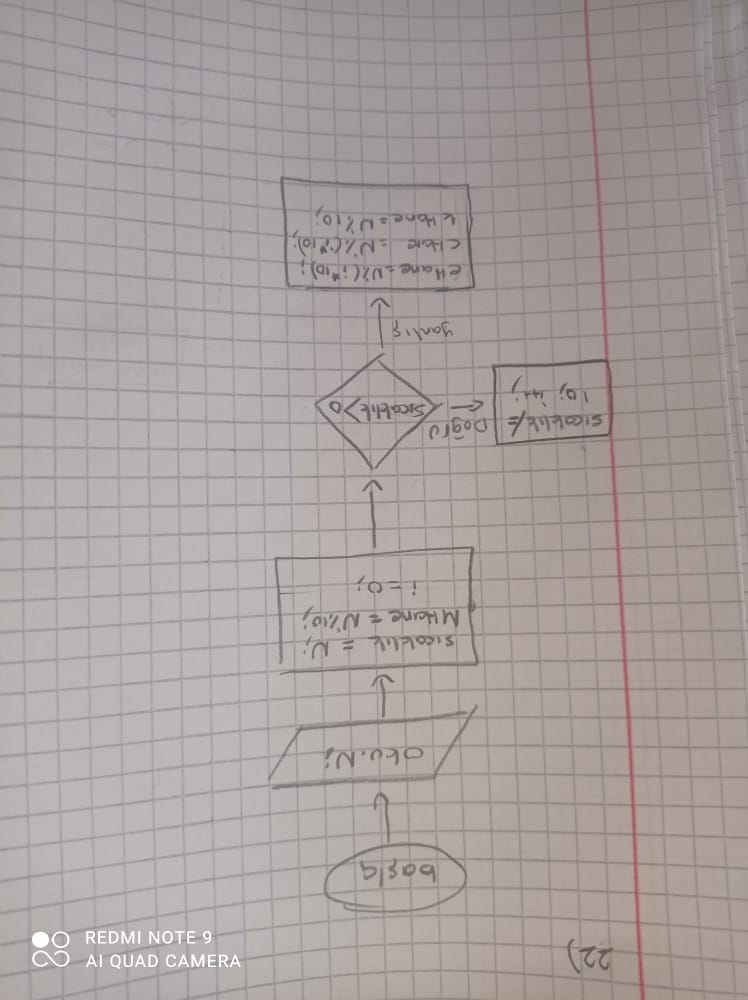 22)
başla
Oku.N;
sıcaklık = N;
MHane = N%10;
i = 0;
Sıcaklık>0
Doğru
sıcaklık/=
10; i++;
yanlış
eHane=N%(i*10);
cHane = N%(i*10);
kHane=N%10;
REDMI NOTE 9
AI QUAD CAMERA